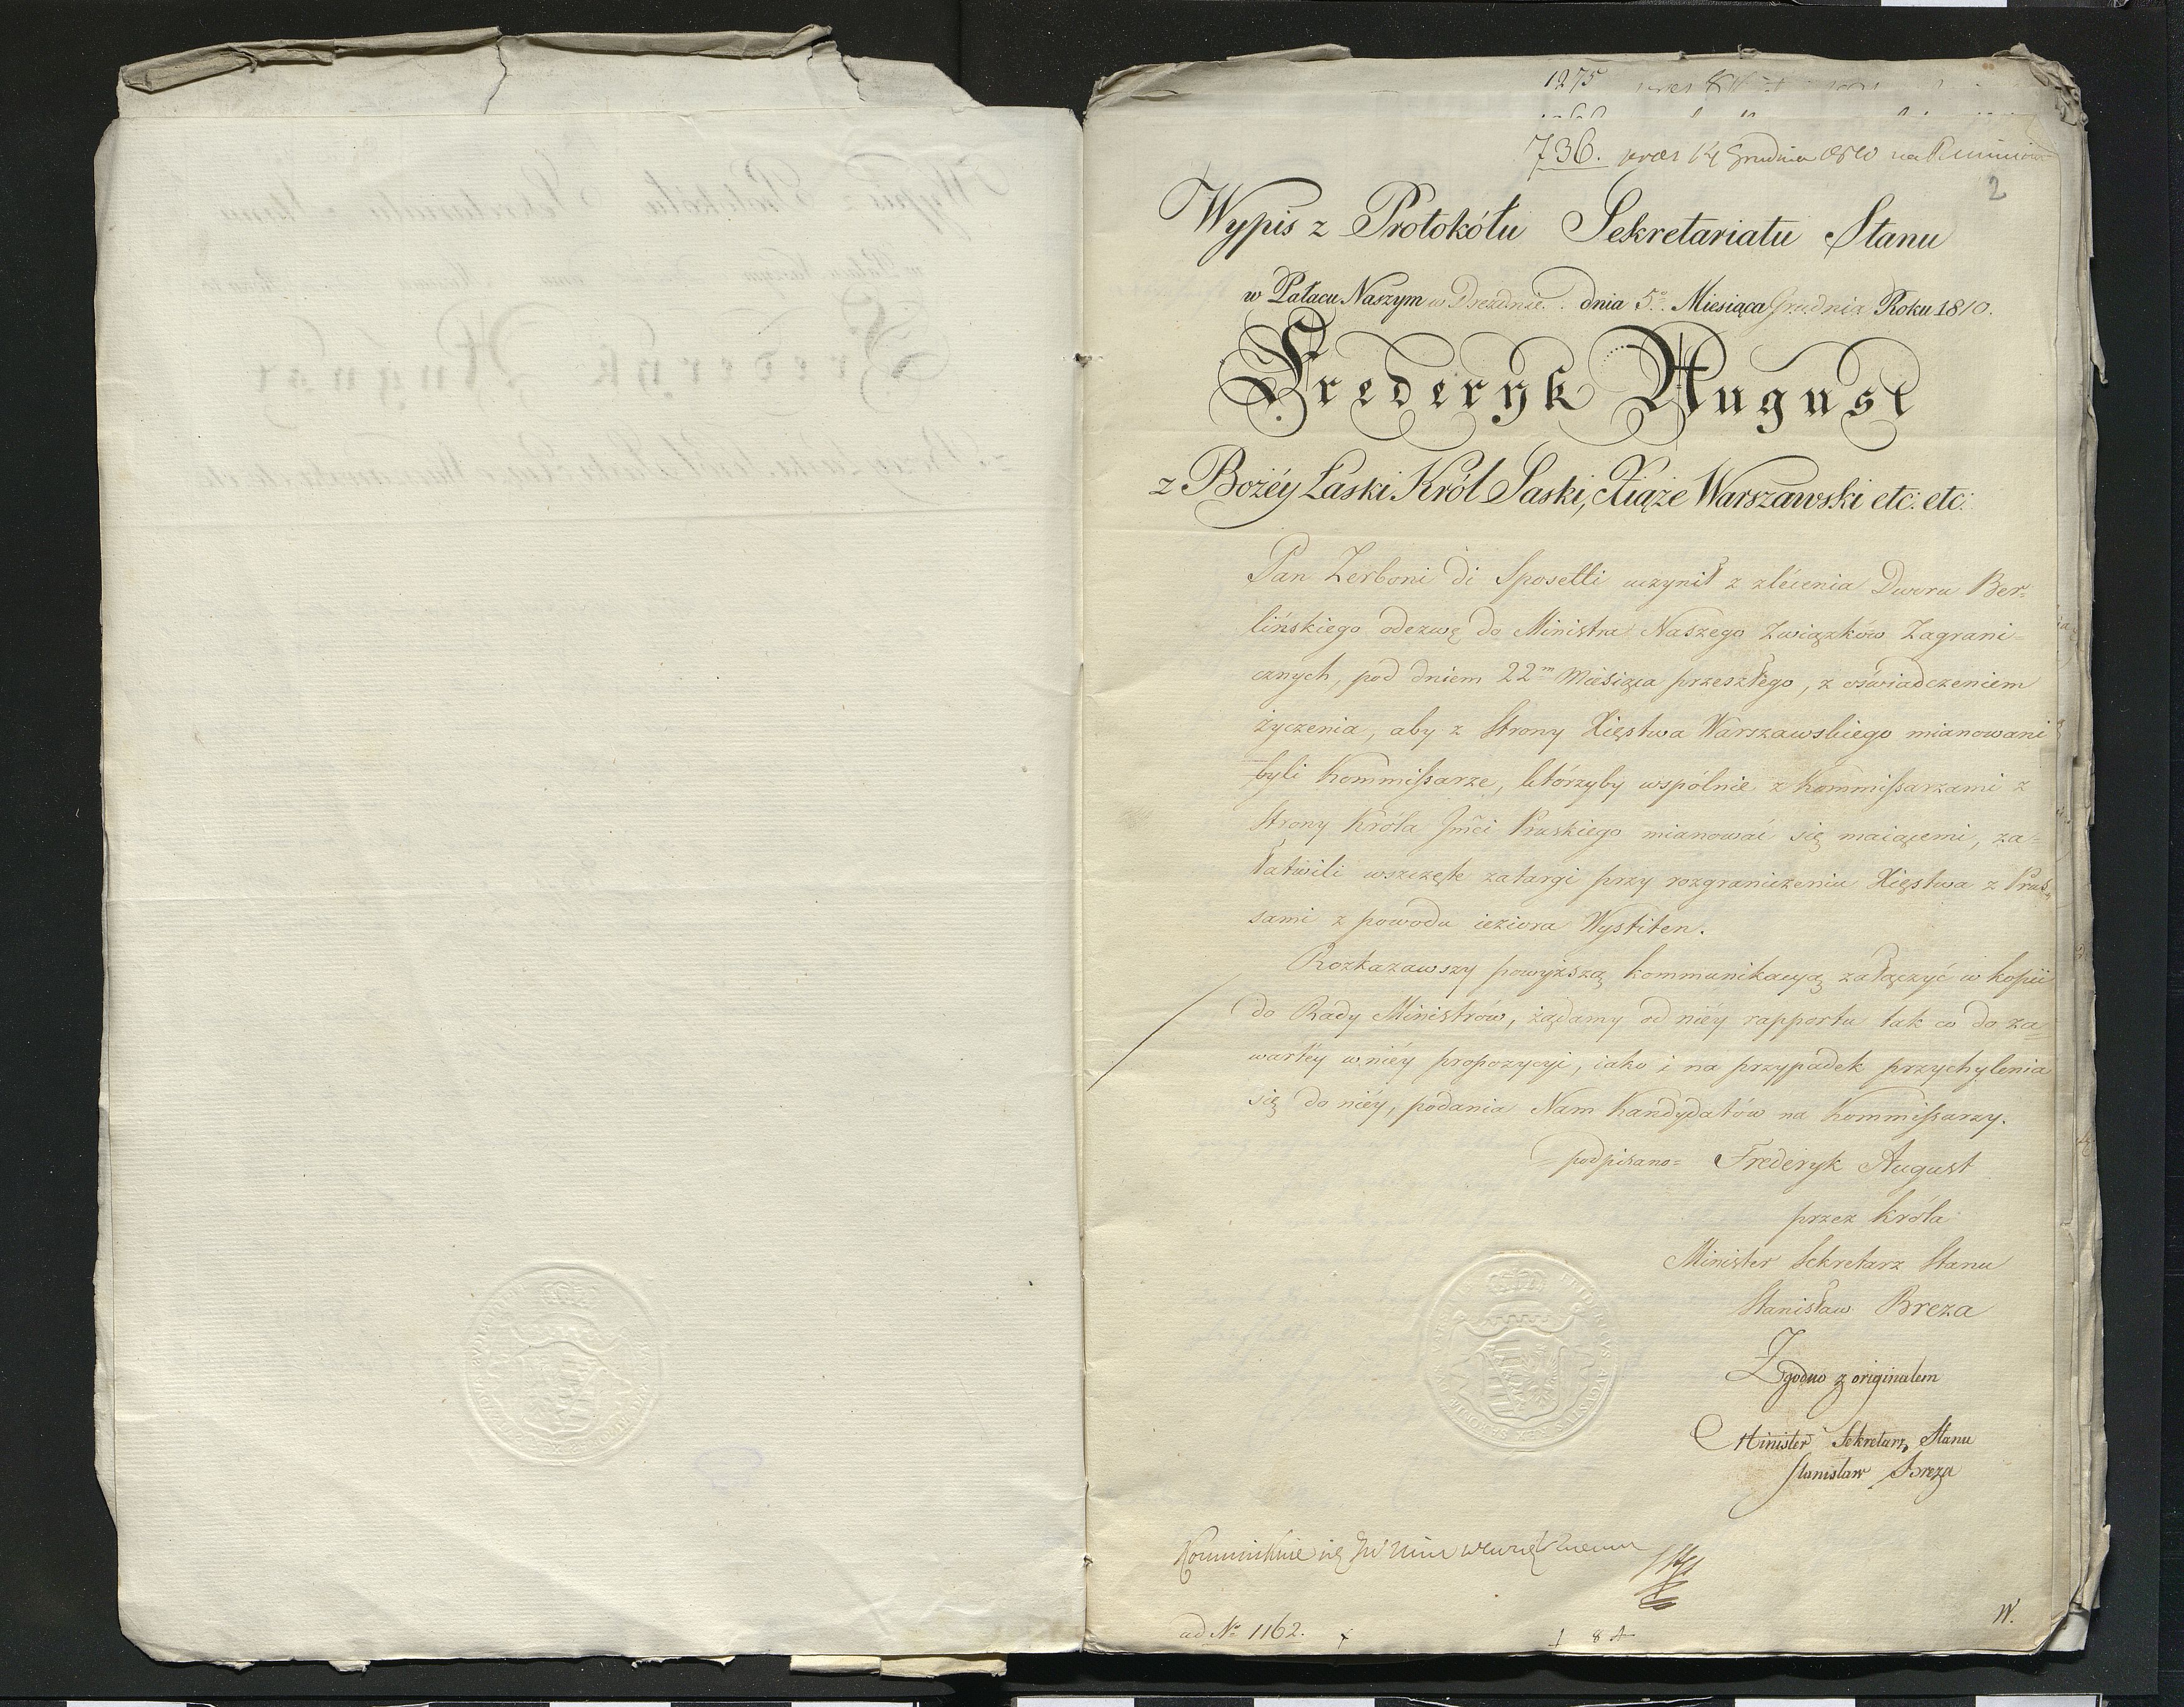 1275
736. praes 14 Grudnia 1810
2
Wypis z Protokółu Sekretariatu Stanu
w Pałacu Naszym w Dreznie. dnia 5o. Miesiąca Grudnia Roku 1810.
Frederyk August
z Bożéy Łaski Król Saski, Xiąże Warszawski etc: etc:
Pan Zerboni di Sposetti uczynił z zlécenia Dworu Ber=
lińskiego odezwę do Ministra Naszego Związków Zagrani=
cznych, pod dniem 22m Miesiąca przeszłego, z oświadczeniem
życzenia, aby z Strony Xięstwa Warszawskiego mianowani
byli Kommissarze, którzyby wspólnie z Kommissarzami z
Strony Króla Jmći Pruskiego mianować się maiącemi, za=
łatwili wszczęte zatargi przy rozgraniczeniu Xięstwa z Prus=
sami z powodu ieziora Wystiten.
Rozkazawszy powyższą kommunikacyą załączyć w kopii
do Rady Ministrów, żądamy od niéy rapportu tak co do za=
wartéy w niéy propozycyi, iako i na przypadek przychylenia
się do niéy, podania Nam Kandydatów na Kommissarzy.
=podpisano= Frederyk August
przez Króla
Minister Sekretarz Stanu
Stanisław Breza
Zgodno z originałem
Minister Sekretarz Stanu
Stanisław Breza
Kommunikuie się JW Min
ad No 1162.
W.